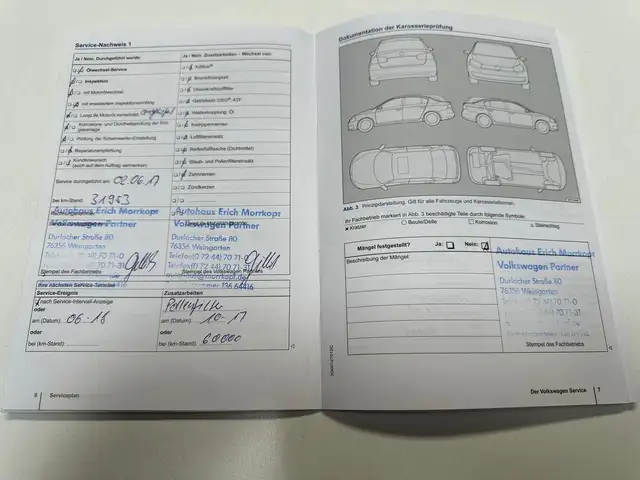 Service-Nachweis 1
Ja / Nein. Durchgeführt wurde:
Ölwechsel-Service
Inspektion
mit Motorölwechsel
mit erweitertem Inspektionsumfang
Prüfung der Scheinwerfer-Einstellung
Reparaturempfehlung
Kundenwunsch
(auch auf dem Auftrag vermerken)
Service durchgeführt am: 02.06.17
bei km-Stand: 31953
Ja / Nein. Zusatzarbeiten – Wechsel von:
Bremsflüssigkeit
Dieselkraftstofffilter
Keilrippenriemen
Luftfiltereinsatz
Reifenfüllflasche (Dichtmittel)
Staub- und Pollenfiltereinsatz
Zahnriemen
Zündkerzen
Autohaus Erich Morrkopf
Volkswagen Partner
Durlacher Straße 80
76356 Weingarten
Stempel des Fachbetriebs
Autohaus Erich Morrkopf
Volkswagen Partner
Durlacher Straße 80
76356 Weingarten
Telefon (0 72 44) 70 71-0
Stempel des Volkswagen Partners
Ihre nächsten Service-Termine
Service-Ereignis
nach Service-Intervall-Anzeige
oder
am (Datum): 06-18
oder
bei (km-Stand):
Zusatzarbeiten
Pollenfilter
am (Datum): 10-17
oder
bei (km-Stand): 60000
6 Serviceplan
Dokumentation der Karosserieprüfung
Abb. 3 Prinzipdarstellung. Gilt für alle Fahrzeuge und Karosserieformen.
Ihr Fachbetrieb markiert in Abb. 3 beschädigte Teile durch folgende Symbole:
Kratzer Beule/Delle Korrosion Steinschlag
Mängel festgestellt? Ja: Nein:
Beschreibung der Mängel:
Autohaus Erich Morrkopf
Volkswagen Partner
Durlacher Straße 80
76356 Weingarten
Stempel des Fachbetriebs
Der Volkswagen Service 7